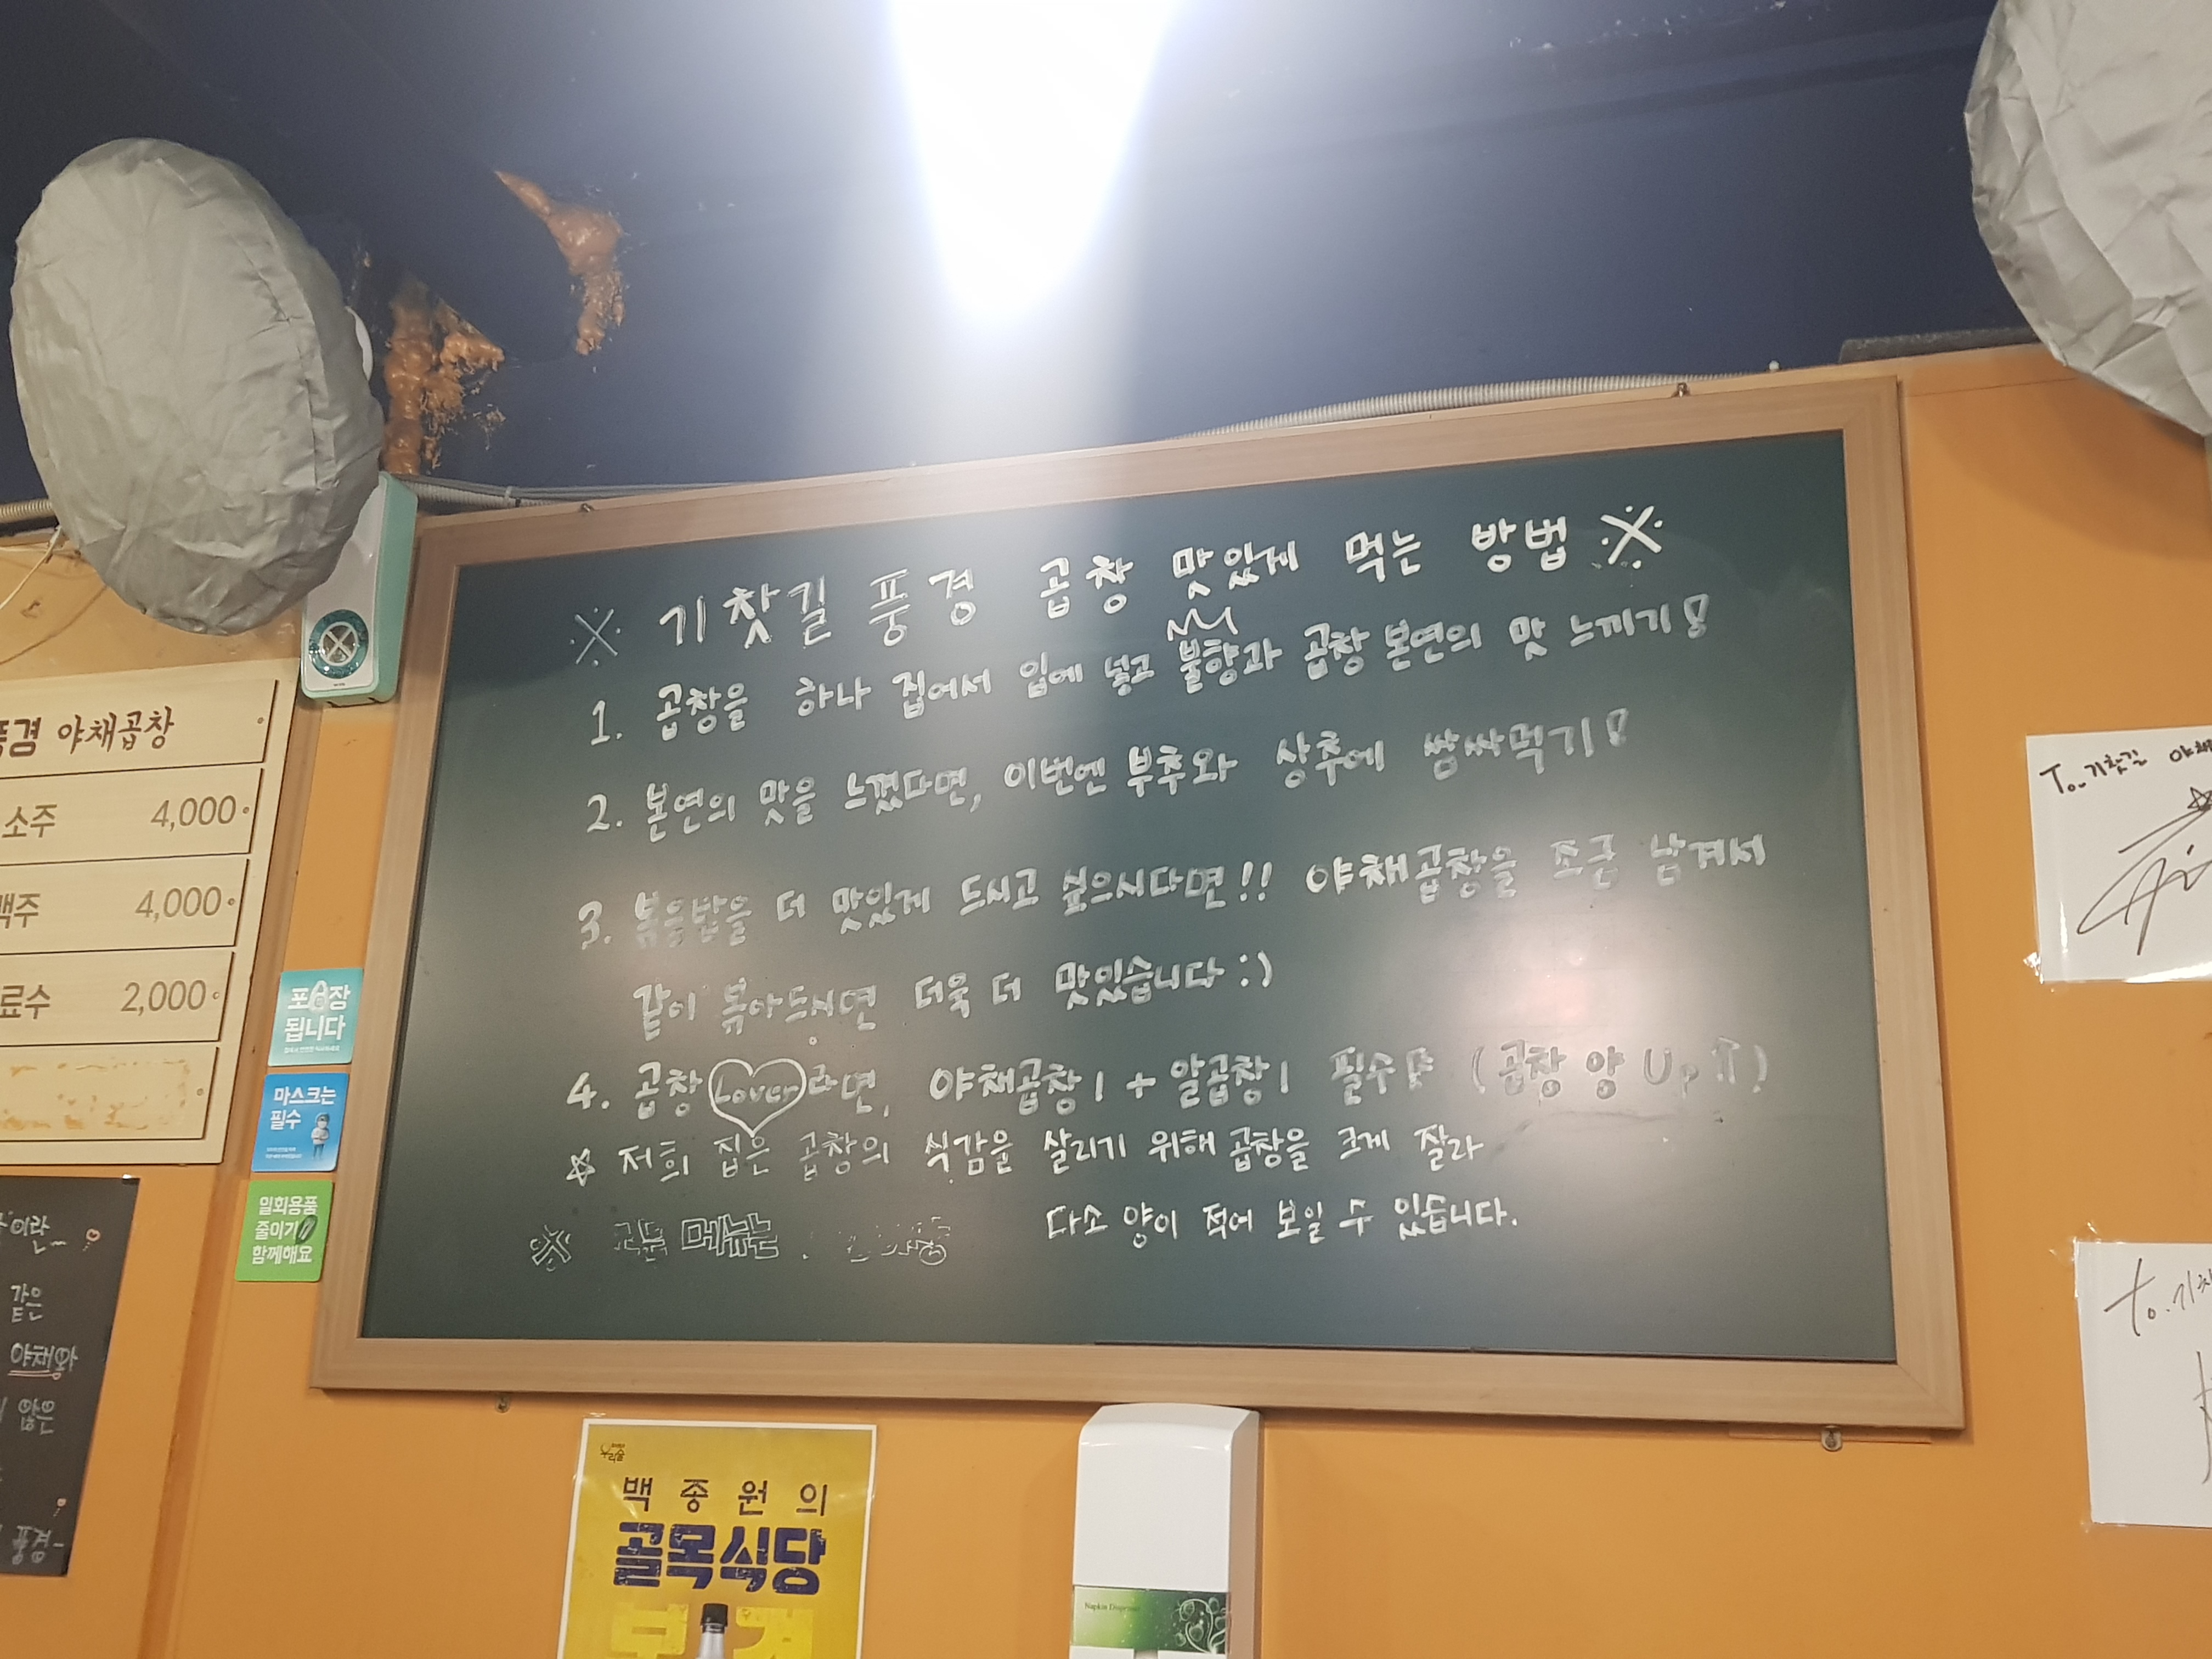 ※ 기찻길 풍경 곱창 맛있게 먹는 방법 ※
1. 곱창을 하나 집어서 입에 넣고 불향과 곱창 본연의 맛 느끼기!
2. 본연의 맛을 느꼈다면, 이번엔 부추와 상추에 쌈싸먹기!
3. 볶음밥을 더 맛있게 드시고 싶으시다면!! 야채곱창을 조금 남겨서
같이 볶아드시면 더욱 더 맛있습니다 :)
4. 곱창 Lover라면, 야채곱창1 + 알곱창1 필수! (곱창 양 Up⇑)
☆ 저희 집은 곱창의 식감을 살리기 위해 곱창을 크게 잘라
다소 양이 적어 보일 수 있습니다.
※ 모든 메뉴는
풍경 야채곱창
소주 4,000
맥주 4,000
료수 2,000
포장
됩니다
마스크는
필수
일회용품
줄이기
함께해요
이란~
같은
야채와
않은
풍경-
백종원의
골목식당
Napkin Dispenser
To. 기찻길 야채
To. 기차